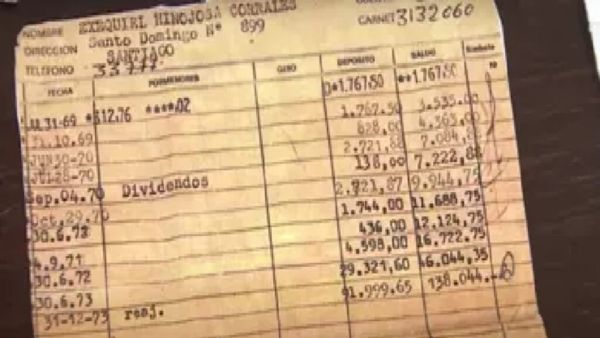 NOMBRE EXEQUIEL HINOJOSA CORRALES
DIRECCION Santo Domingo Nº 899
SANTIAGO
CARNET 3132660
TELEFONO
FECHA PORMENORES GIRO DEPOSITO SALDO
1.767.50 1.767.50
31-69 $12.76 ****.02 1.767.50 3.535.00
31.10.69 828,00 4.363.00
JUN30-70 2.721,88 7.084,88
JUL28-70 138,00 7.222,88
Sep.04.70 Dividendos 2.721,87 9.944,75
Oct.29.70 1.744,00 11.688,75
30.6.72 436,00 12.124,75
4.9.71 4.598,00 16.722,75
30.6.72 29.321,60 46.044,35
30.6.73 91.999,65 138.044.--
31-12-73 reaj.